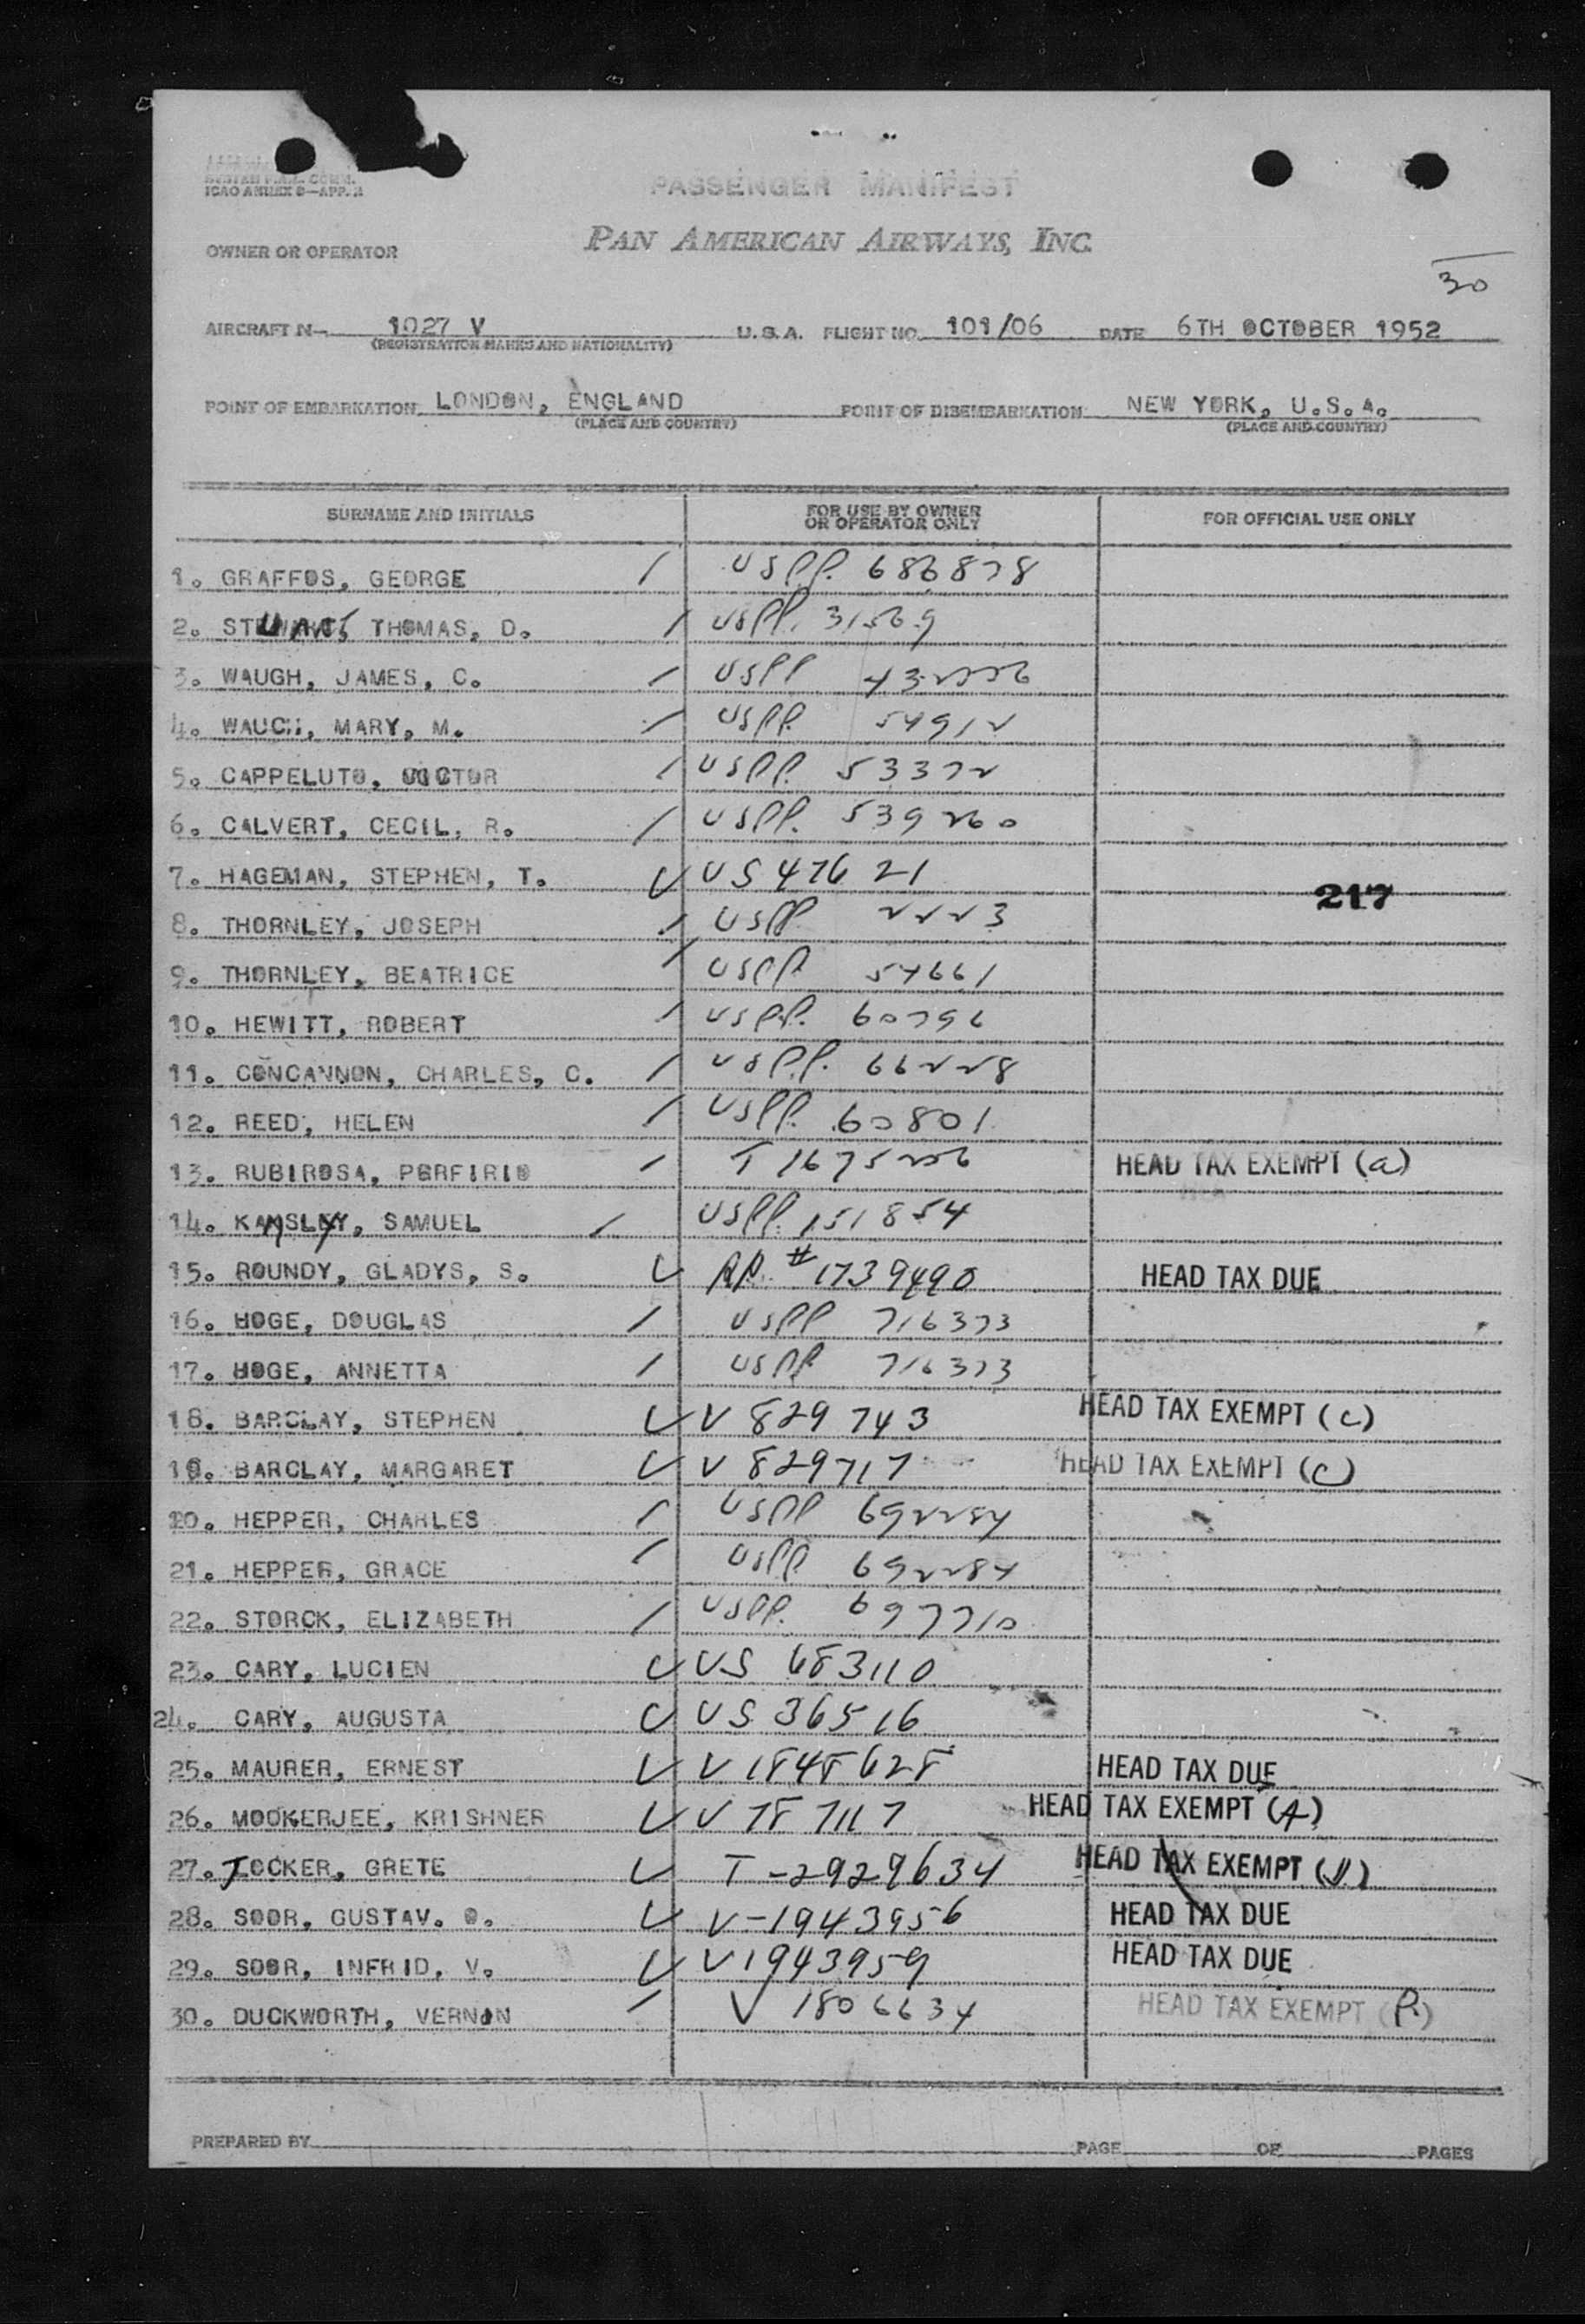 ICAO ANNEX 9—APP. A
PASSENGER MANIFEST
PAN AMERICAN AIRWAYS, INC.
OWNER OR OPERATOR
30
AIRCRAFT N— 1027 V U.S.A. FLIGHT NO. 101/06 DATE 6TH OCTOBER 1952
(REGISTRATION MARKS AND NATIONALITY)
POINT OF EMBARKATION LONDON, ENGLAND POINT OF DISEMBARKATION NEW YORK, U.S.A.
(PLACE AND COUNTRY) (PLACE AND COUNTRY)
SURNAME AND INITIALS FOR USE BY OWNER OR OPERATOR ONLY FOR OFFICIAL USE ONLY
1. GRAFFOS, GEORGE USPP. 686878
2. STUART, THOMAS, D. USPP. 31569
3. WAUGH, JAMES, C. USPP
4. WAUGH, MARY, M. USPP. 54912
5. CAPPELUTO, VICTOR USPP. 53372
6. CALVERT, CECIL, R. USPP. 539260
7. HAGEMAN, STEPHEN, T. US 47621
217
8. THORNLEY, JOSEPH USPP 2223
9. THORNLEY, BEATRICE USPP. 54661
10. HEWITT, ROBERT USPP. 60796
11. CONCANNON, CHARLES, C. USPP. 66228
12. REED, HELEN USPP. 60801
13. RUBIROSA, PORFIRIO T 1675 HEAD TAX EXEMPT (a)
14. SAMUEL USPP. 151854
15. ROUNDY, GLADYS, S. PP. # 1739490 HEAD TAX DUE
16. HOGE, DOUGLAS USPP 716373
17. HOGE, ANNETTA USPP 716373
18. BARCLAY, STEPHEN V 829743 HEAD TAX EXEMPT (c)
19. BARCLAY, MARGARET V 829717 HEAD TAX EXEMPT (c)
20. HEPPER, CHARLES USPP 692284
21. HEPPER, GRACE USPP 692284
22. STORCK, ELIZABETH USPP. 697710
23. CARY, LUCIEN US 683110
24. CARY, AUGUSTA US 36516
25. MAURER, ERNEST V 1848628 HEAD TAX DUE
26. MOOKERJEE, KRISHNER V 787117 HEAD TAX EXEMPT (A)
27. GRETE T-2929634 HEAD TAX EXEMPT
28. SOOR, GUSTAV. O. V-1943956 HEAD TAX DUE
29. SOOR, INFRID, V. V 1943959 HEAD TAX DUE
30. DUCKWORTH, VERNON V 1806634 HEAD TAX EXEMPT (P.)
PREPARED BY PAGE OF PAGES